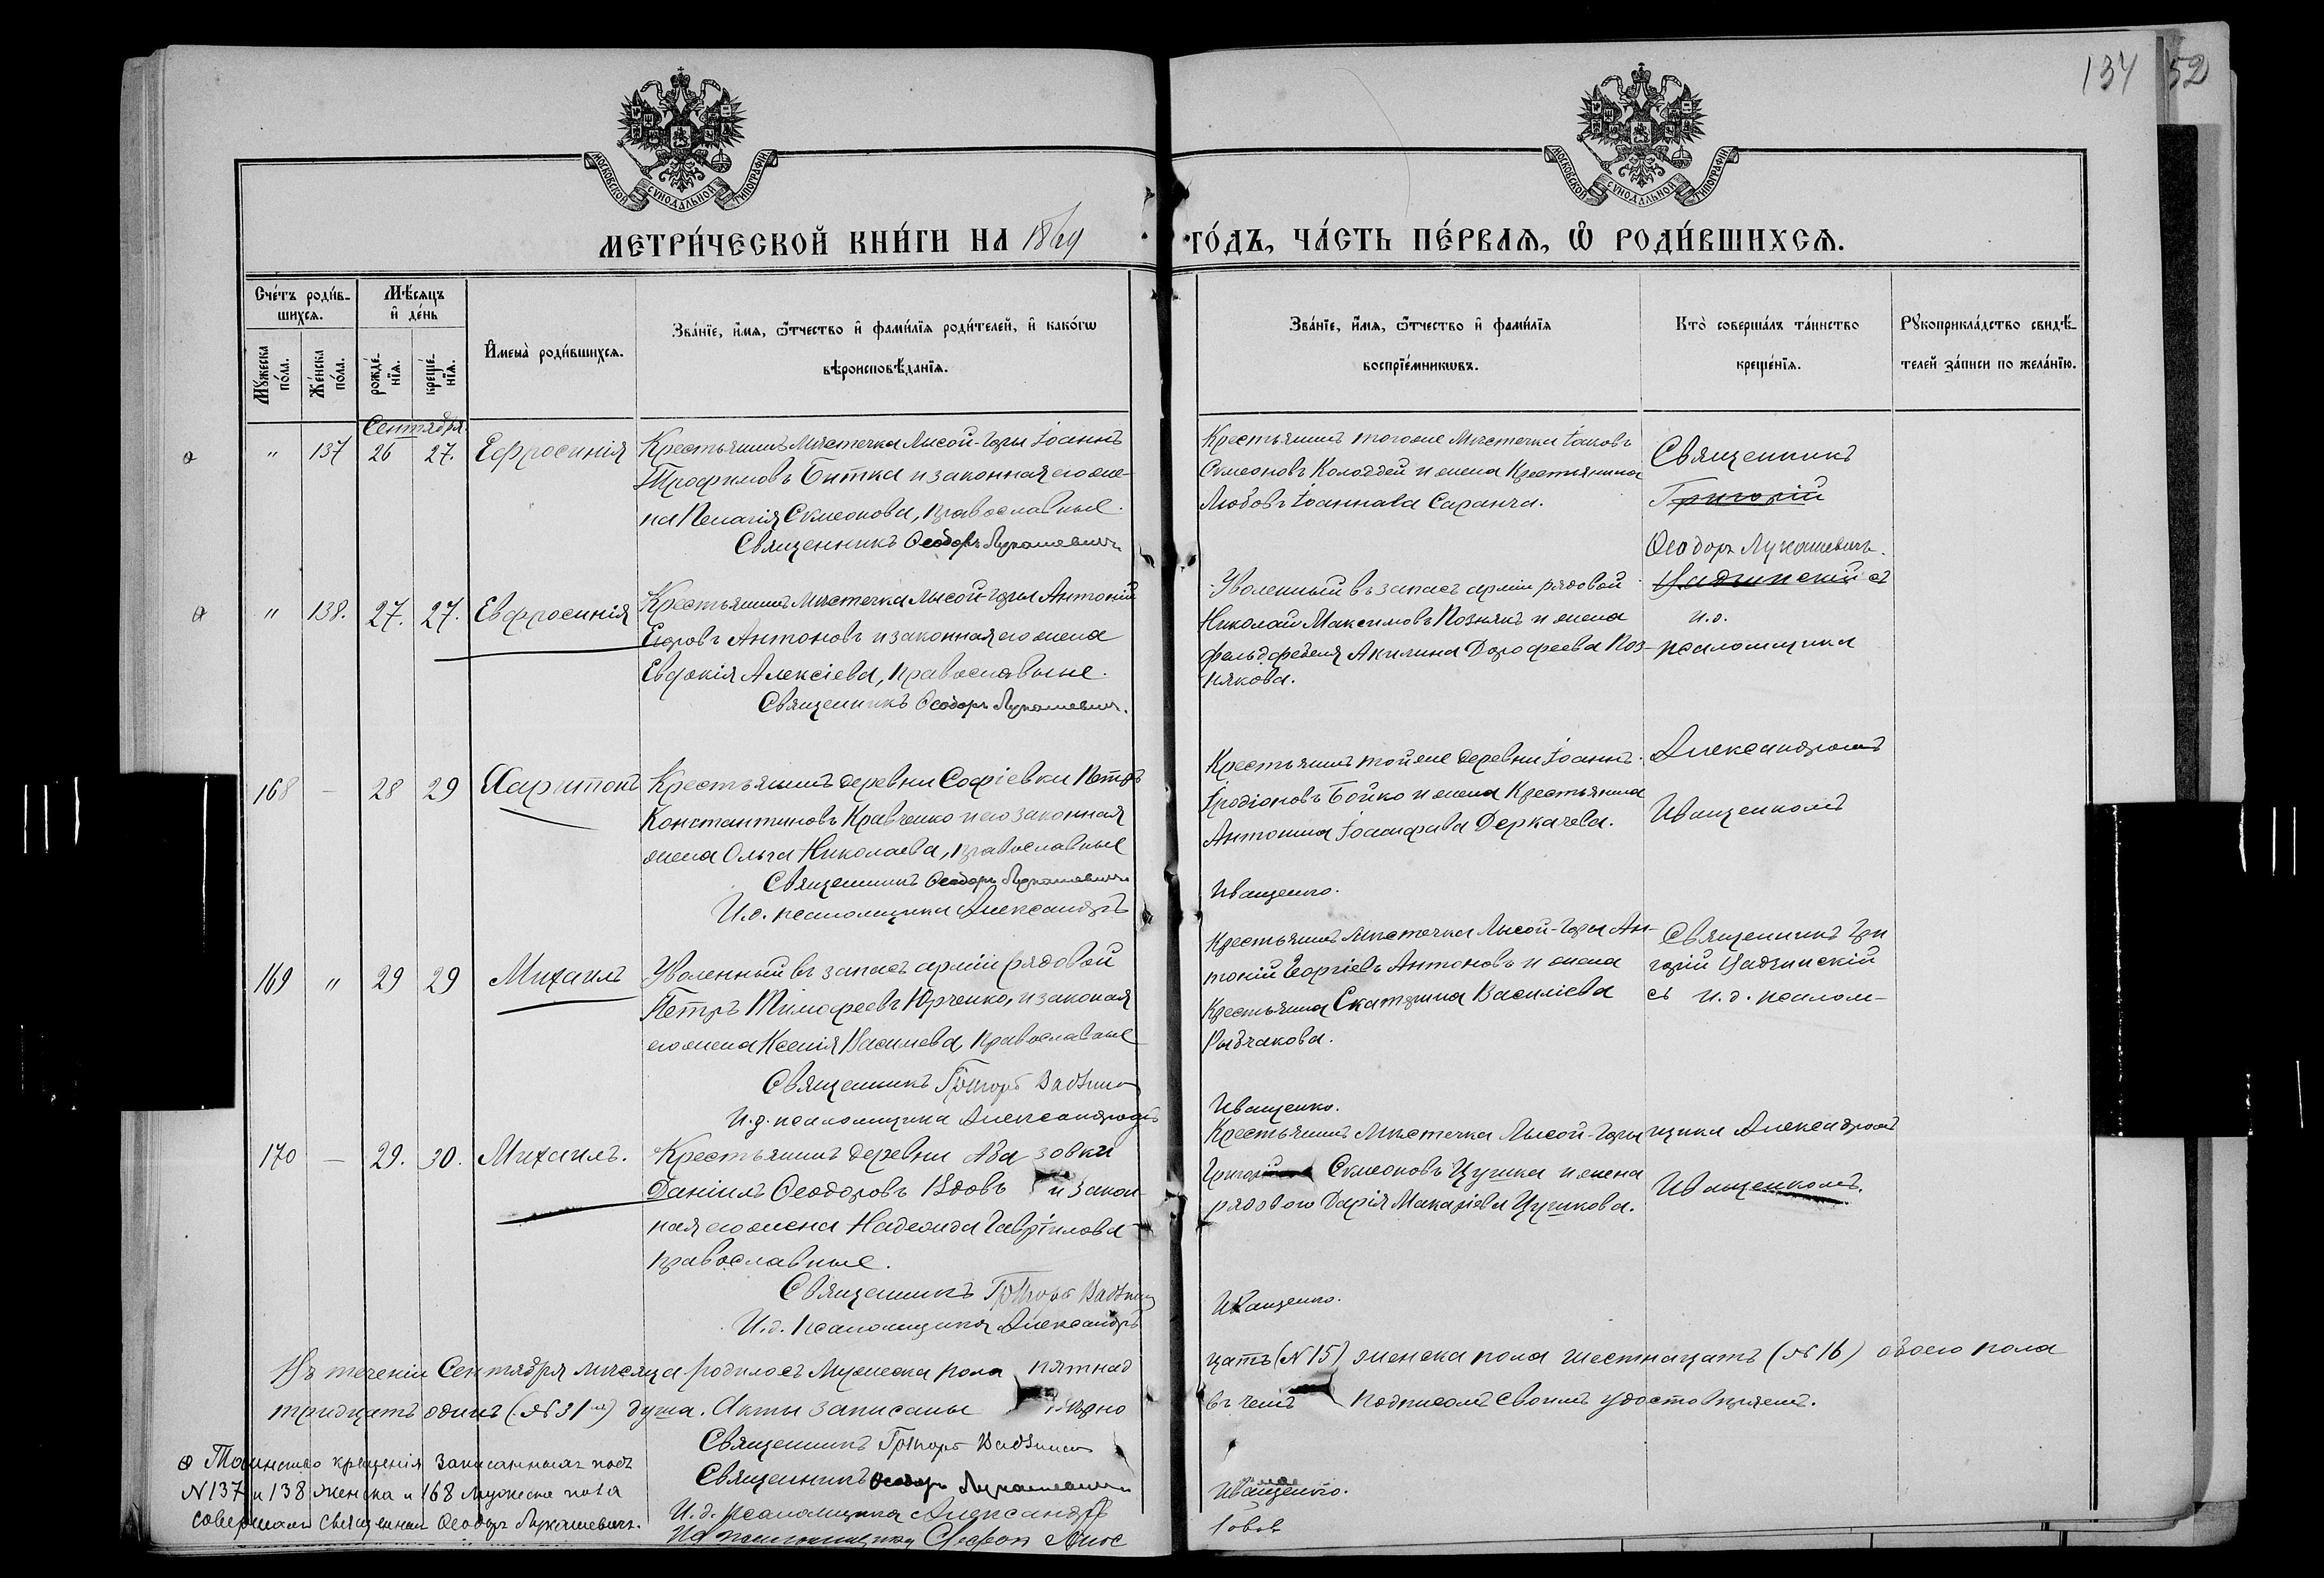 134
52
МОСКОВСКОЙ СѴНОДАЛЬНОЙ ТИПОГРАФІИ
МОСКОВСКОЙ СѴНОДАЛЬНОЙ ТИПОГРАФІИ
МЕТРИ́ЧЕСКОЙ КНИ́ГИ НА 18
ГО́ДЪ, ЧА́СТЬ ПЕ́РВАѦ, Ѽ РОДИ́ВШИХСѦ.
Сче́тъ роди́в-
шихсѧ.
Мѣ́сѧцъ
и҆ де́нь
Мꙋ́жеска
по́ла.
Же́нска
по́ла.
рожде́-
нїѧ.
креще́-
нїѧ.
И҆мена̀ роди́вшихсѧ.
Зва́нїе, и҆́мѧ, ѻ҆́тчество и҆ фами́лїѧ роди́телей, и҆ како́гѡ
вѣроисповѣ́данїѧ.
Зва́нїе, и҆́мѧ, ѻ҆́тчество и҆ фами́лїѧ
воспрїе́мникѡвъ.
Кто̀ соверша́лъ та́инство
креще́нїѧ.
Рꙋкоприкла́дство свидѣ́-
телей за́писи по жела́нїю.
Сентября.
" 137 26 27. Ефросинія
Крестьянинъ Мѣстечка Лысой-Горы Іоаннъ
Трофимовъ Битка и законная его же-
на Пелагія Симеонова, православные.
Священникъ Ѳеодоръ Лукашевичъ
Крестьянинъ того же Мѣстечка Іаковъ
Симеоновъ Колоддей и жена Крестьянина
Любовь Іоаннова Саранча.
Священникъ
Григорій
Ѳеодоръ Лукашевичъ.
" 138. 27. 27. Евфросинія
Крестьянинъ Мѣстечка Лысой-Горы Антоній
Егоровъ Антоновъ и законная его жена
Евдокія Алексіева, православные.
Священникъ Ѳеодоръ Лукашевичъ.
Уволенный въ запасъ арміи рядовой
Николай Максимовъ Познякъ и жена
фельдфебеля Акилина Дорофеева Поз-
някова.
съ
и.д.
псаломщика
168 — 28 29 Харитонъ
Крестьянинъ деревни Софіевки Петръ
Константиновъ Кравченко и его законная
жена Ольга Николаева, православные
Священникъ Ѳеодоръ Лукашевичъ
И.д. псаломщика Александръ
Крестьянинъ той же деревни Іоаннъ
Іродіоновъ Бойко и жена Крестьянина
Антонина Іоасафова Деркачева.
Иващенко.
Александромъ
Иващенкомъ
169 " 29 29 Михаилъ
Уволенный въ запасъ арміи рядовой
Петръ Тимофеевъ Юрченко, и законая
его жена Ксенія Васильева, православные
Священникъ Григорій
И.д. псаломщика Александръ
Крестьянинъ Мѣстечка Лысой-Горы Ан-
тоній Георгіевъ Антоновъ и жена
Крестьянина Екатерина Василіева
Рыбчакова.
Иващенко.
Священникъ Гри
горій
съ и.д. псалом-
170 — 29. 30. Михаилъ.
Крестьянинъ деревни Аба зовки
Даніилъ Ѳеодоровъ Вдовъ и закон-
ная его жена Надежда Гавріилова
православные.
Священникъ Григорій
И.д. Псаломщика Александръ
Крестьянинъ Мѣстечка Лысой-Горы
Григорій Симеоновъ Цушка и жена
рядового Дарія Макаріева Цушкова.
Иващенко.
щика Александромъ
Иващенкомъ.
Въ теченіи Сентября мѣсяца родилось Мужеска пола пятнад
цать (№ 15) женска пола шестнацать (№ 16) обоего пола
тридцать одинъ (№ 31) душа. Акты записаны вѣрно
въ чемъ подписомъ своимъ удостовѣряемъ.
Священникъ Григорій
Священникъ Ѳеодоръ Лукашевичъ
И.д. псаломщика Александръ
Иващенко.
Таинство крещенія записанныхъ подъ
N 137 и 138 женска и 168 мужеска пола
совершалъ Священникъ Ѳеодоръ Лукашевичъ.